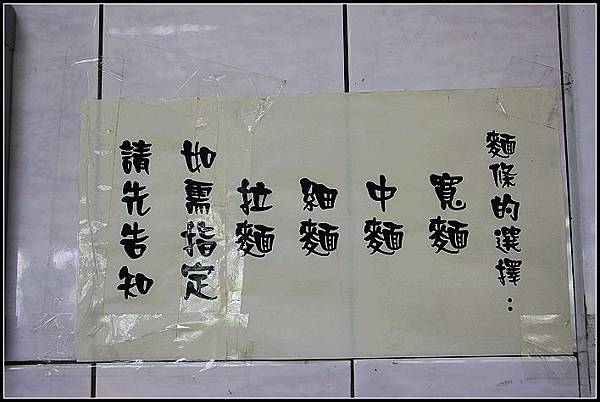 麵條的選擇：
寬麵
中麵
細麵
拉麵
如需指定
請先告知